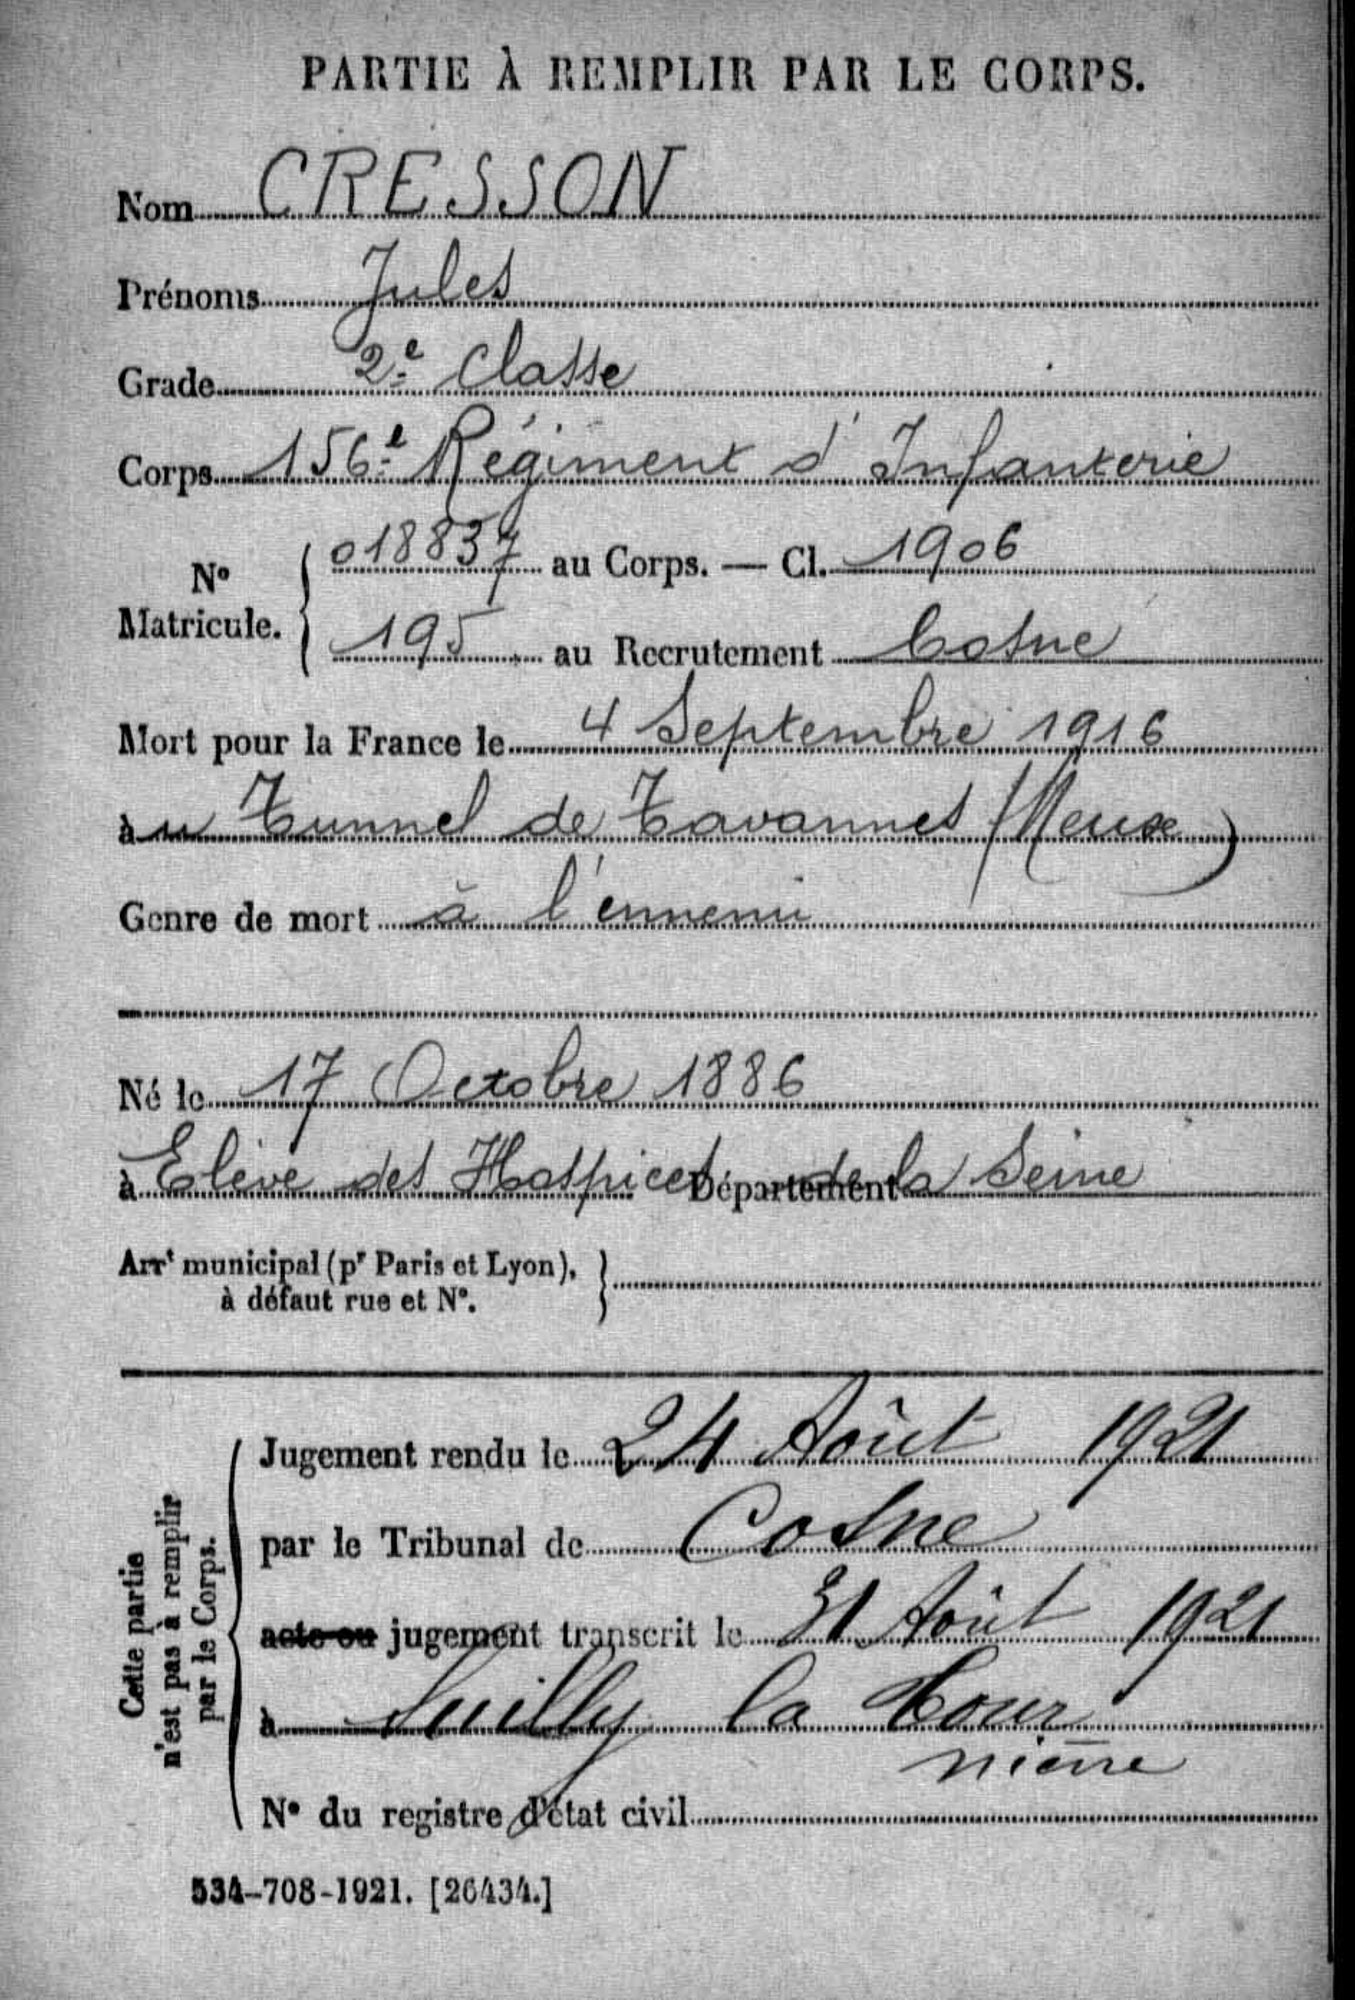 PARTIE À REMPLIR PAR LE CORPS.
Nom CRESSON
Prénoms Jules
Grade 2e classe
Corps 156e Régiment d'Infanterie
No Matricule. 018837 au Corps. — Cl. 1906
195 au Recrutement Cosne
Mort pour la France le 4 Septembre 1916
à u Tunnel de Tavannes (Meuse)
Genre de mort à l'ennemi
Né le 17 Octobre 1886
à Elève des Hospices Département de la Seine
Arrt municipal (pr Paris et Lyon),
à défaut rue et No.
Cette partie
n'est pas à remplir
par le Corps.
Jugement rendu le 24 Aôut 1921
par le Tribunal de Cosne
acte ou jugement transcrit le 31 Aôut 1921
à Suilly la Tour
nièvre
No du registre d'état civil
534-708-1921. [26434.]